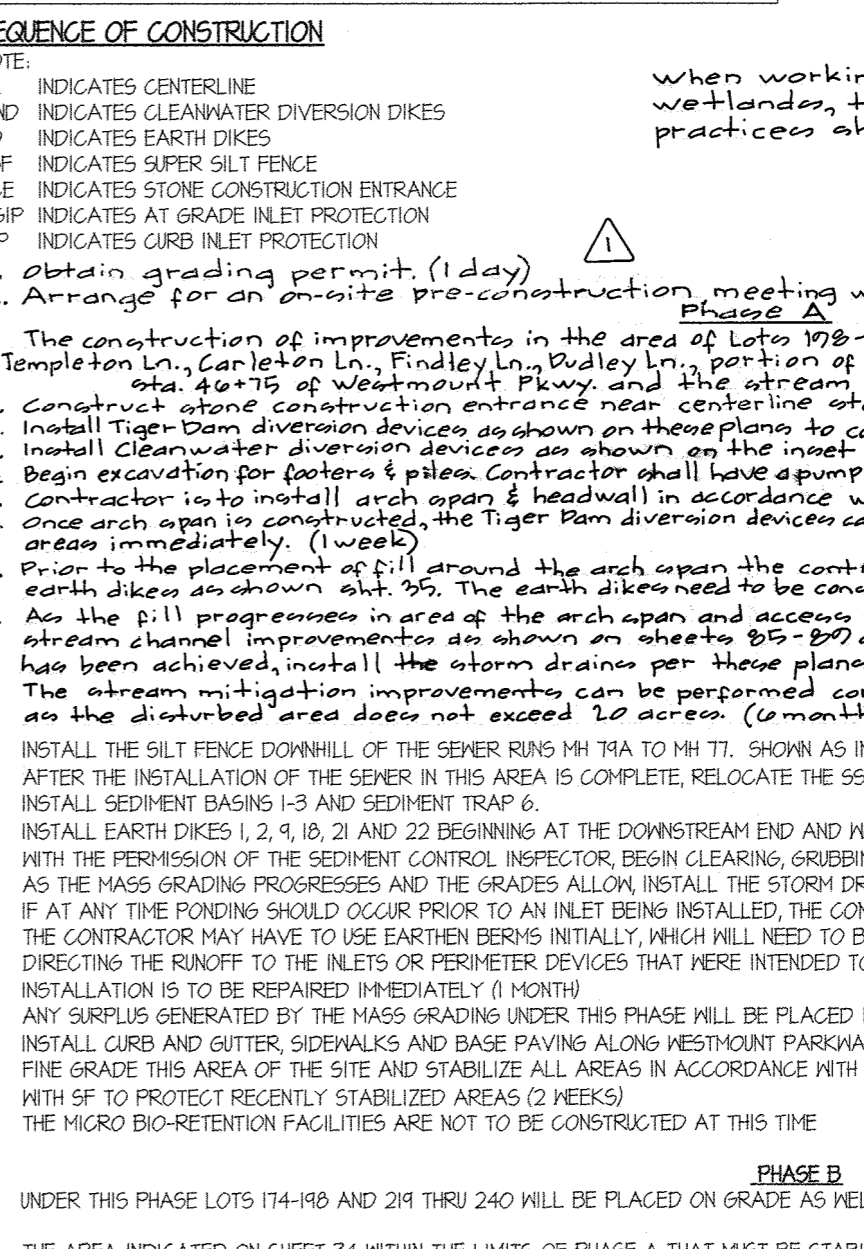 EQUENCE OF CONSTRUCTION
OTE:
INDICATES CENTERLINE
ND INDICATES CLEANWATER DIVERSION DIKES
INDICATES EARTH DIKES
F INDICATES SUPER SILT FENCE
CE INDICATES STONE CONSTRUCTION ENTRANCE
GIP INDICATES AT GRADE INLET PROTECTION
P INDICATES CURB INLET PROTECTION
When workin
wetlands, t
practices sh
1
. Obtain grading permit. (1 day)
. Arrange for an on-site pre-construction meeting w
Phase A
The construction of improvements in the area of Lots 178-
Templeton Ln., Carleton Ln., Findley Ln., Dudley Ln., portion of
sta. 46+75 of Westmount Pkwy. and the stream
. Construct stone construction entrance near centerline sta
. Install Tiger Dam diversion devices as shown on these plans to co
. Install Cleanwater diversion devices as shown on the inset
. Begin excavation for footers & piles. Contractor shall have a pump
. Contractor is to install arch span & headwall in accordance w
. Once arch span is constructed, the Tiger Dam diversion devices ca
areas immediately. (1 week)
. Prior to the placement of fill around the arch span the contr
earth dikes as shown sht. 35. The earth dikes need to be cons
. As the fill progresses in area of the arch span and access
stream channel improvements as shown on sheets 85-89
has been achieved, install the storm drains per these plans
The stream mitigation improvements can be performed con
as the disturbed area does not exceed 20 acres. (6 month
INSTALL THE SILT FENCE DOWNHILL OF THE SEWER RUNS MH 79A TO MH 77. SHOWN AS IN
AFTER THE INSTALLATION OF THE SEWER IN THIS AREA IS COMPLETE, RELOCATE THE SS
INSTALL SEDIMENT BASINS 1-3 AND SEDIMENT TRAP 6.
INSTALL EARTH DIKES 1, 2, 9, 18, 21 AND 22 BEGINNING AT THE DOWNSTREAM END AND W
WITH THE PERMISSION OF THE SEDIMENT CONTROL INSPECTOR, BEGIN CLEARING, GRUBBIN
AS THE MASS GRADING PROGRESSES AND THE GRADES ALLOW, INSTALL THE STORM DR
IF AT ANY TIME PONDING SHOULD OCCUR PRIOR TO AN INLET BEING INSTALLED, THE CON
THE CONTRACTOR MAY HAVE TO USE EARTHEN BERMS INITIALLY, WHICH WILL NEED TO B
DIRECTING THE RUNOFF TO THE INLETS OR PERIMETER DEVICES THAT WERE INTENDED TO
INSTALLATION IS TO BE REPAIRED IMMEDIATELY (1 MONTH)
ANY SURPLUS GENERATED BY THE MASS GRADING UNDER THIS PHASE WILL BE PLACED
INSTALL CURB AND GUTTER, SIDEWALKS AND BASE PAVING ALONG WESTMOUNT PARKWA
FINE GRADE THIS AREA OF THE SITE AND STABILIZE ALL AREAS IN ACCORDANCE WITH
WITH SF TO PROTECT RECENTLY STABILIZED AREAS (2 WEEKS)
THE MICRO BIO-RETENTION FACILITIES ARE NOT TO BE CONSTRUCTED AT THIS TIME
PHASE B
UNDER THIS PHASE LOTS 174-198 AND 219 THRU 240 WILL BE PLACED ON GRADE AS WEL
THE AREA INDICATED ON SHEET 34 WITHIN THE LIMITS OF PHASE A THAT MUST BE STAB